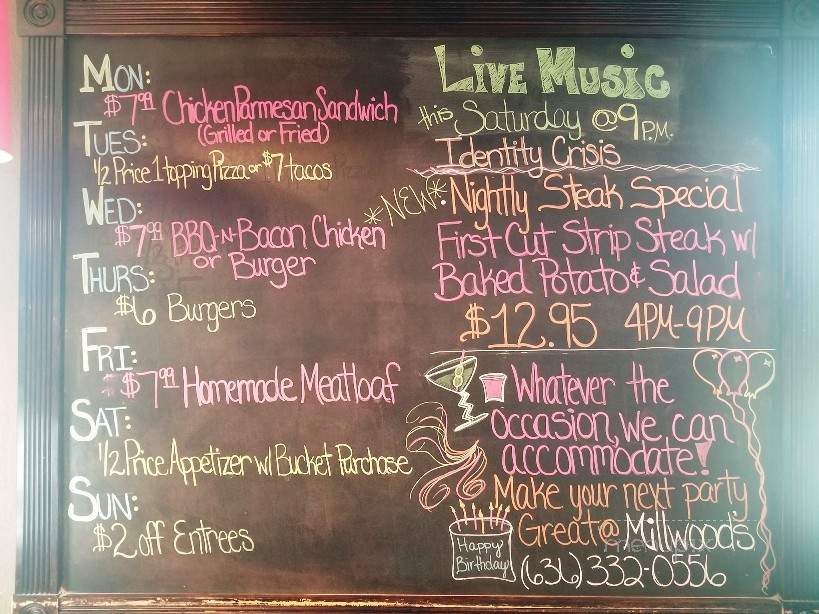 Mon:
$7.99 Chicken Parmesan Sandwich
(Grilled or Fried)
Tues:
1/2 Price 1 topping Pizza or $7 tacos
Wed:
$7.99 BBQ-N-Bacon Chicken
or Burger
Thurs:
$6 Burgers
Fri:
$7.99 Homemade Meatloaf
Sat:
1/2 Price Appetizer w/ Bucket Purchase
Sun:
$2 off Entrees
Live Music
this Saturday @ 9 P.M.
Identity Crisis
*NEW*: Nightly Steak Special
First Cut Strip Steak w/
Baked Potato & Salad
$12.95 4PM-9PM
Whatever the
occasion, we can
accommodate!
Make your next party
Great @ Millwood's
(636) 332-0556
Happy
Birthday